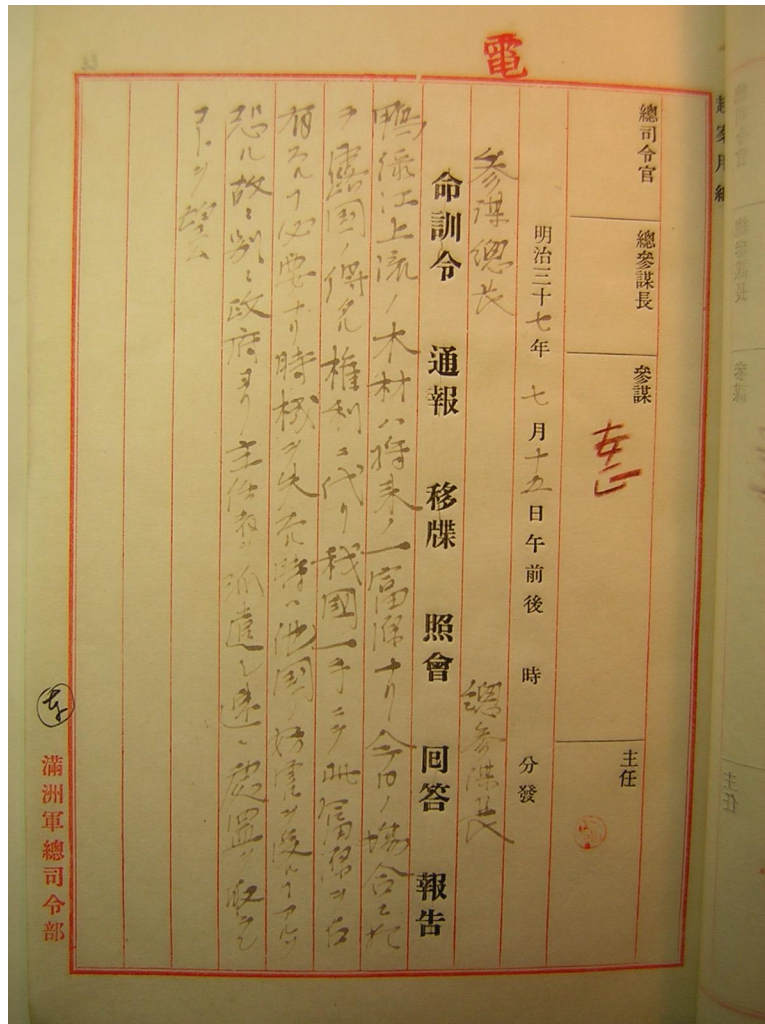 電
總司令官
總參謀長
參謀
主任
明治三十七年 七月十五日午前後 時 分發
参謀總長 總参謀長
命訓令 通報 移牒 照會 回答 報告
鴨緑江上流ノ木材ハ将来ノ一富源ナリ今日ノ場合ニ於
テ露国ノ得タル権利ニ代リ我國一手ニテ此富源ヲ占
有スルコ必要ナリ時機ヲ失スル時ハ他国ノ妨害ヲ受ルコアルヲ
恐ル故ニ別ニ政府ヨリ主任者ヲ派遣シ速ニ處置ヲ取ラン
コトヲ望ム
滿洲軍總司令部